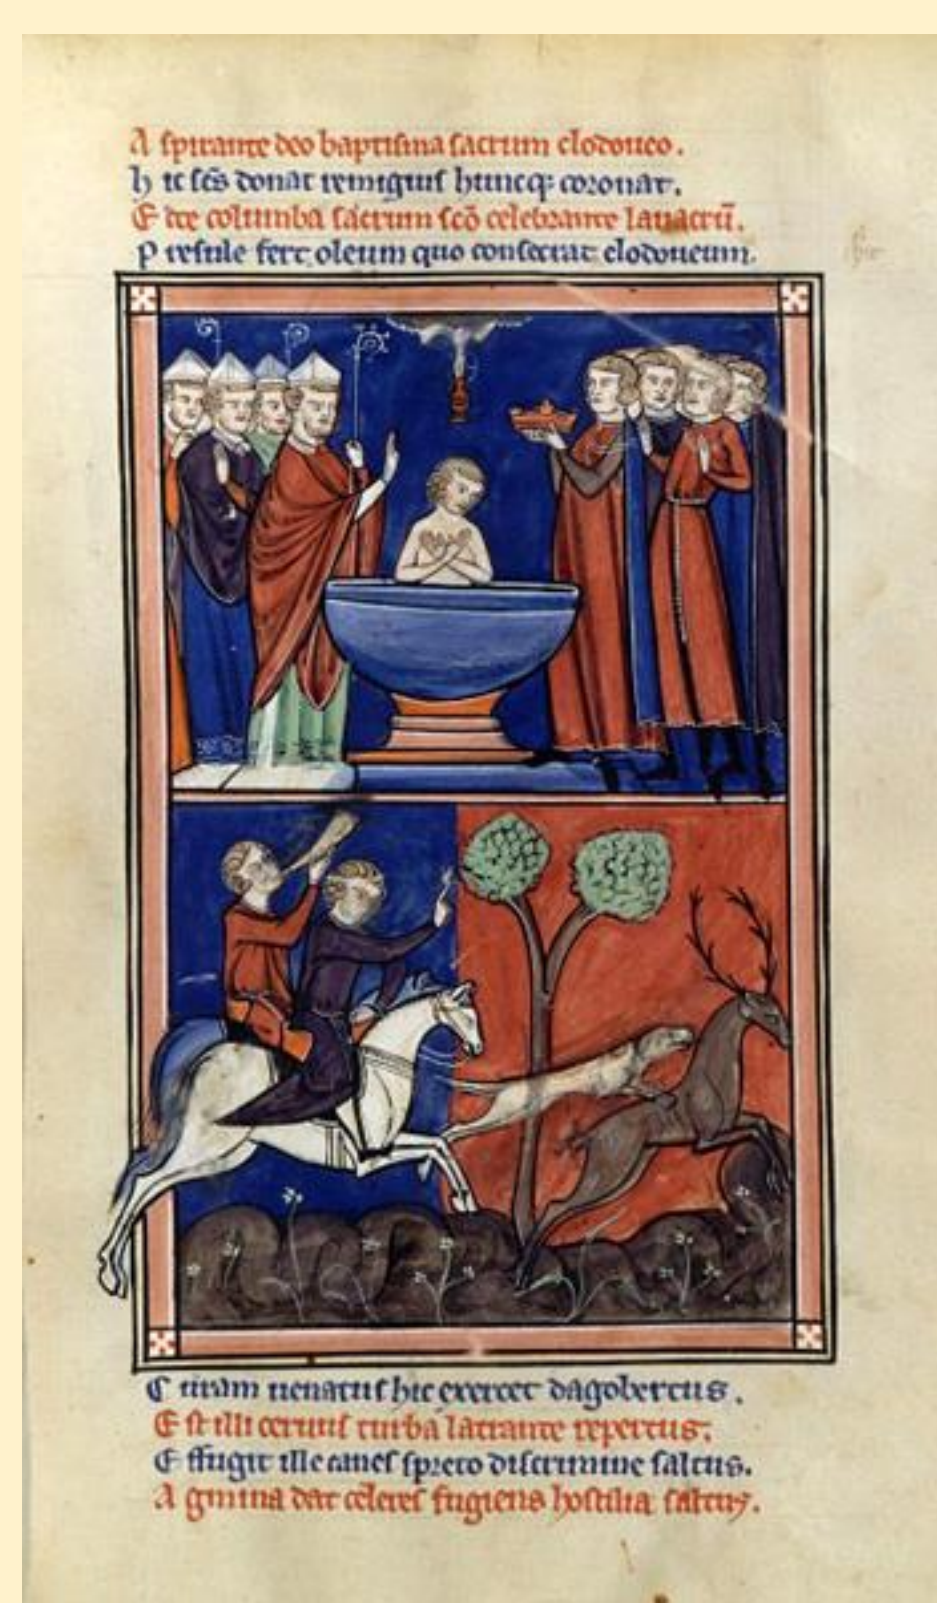 A spirante deo baptisma sacrum clodoueo.
h ic scs donat remigius huncq; coronat.
E dce columba sacrum sco celebrante lauacru.
P resule fert oleum quo consecrat clodoueum.
C uram uenatus hic exercet dagobertus.
E st illi ceruus turba latrante repertus.
E ffugit ille canes spreto discrimine saltus.
A gmina dat celeres fugiens hostilia saltus.